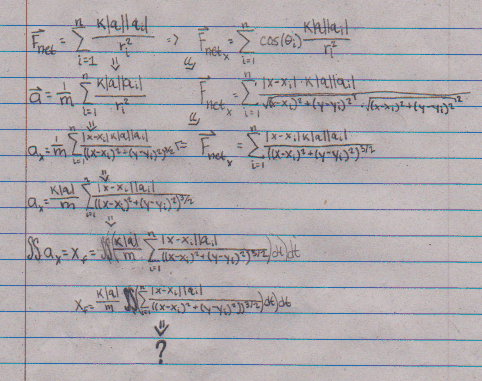 F⃗net = Σ(i=1 to n) K|q||qi| / ri² => F⃗netx = Σ(i=1 to n) cos(θi) K|q||qi| / ri²
a⃗ = 1/m Σ(i=1 to n) K|q||qi| / ri² F⃗netx = Σ(i=1 to n) |x-xi|·K|q||qi| / √((x-xi)²+(y-yi)²) · √((x-xi)²+(y-yi)²)²
ax = 1/m Σ(i=1 to n) |x-xi|K|q||qi| / ((x-xi)²+(y-yi)²)^3/2 => F⃗netx = Σ(i=1 to n) |x-xi|K|q||qi| / ((x-xi)²+(y-yi)²)^3/2
ax = K|q|/m Σ(i=1 to n) |x-xi||qi| / ((x-xi)²+(y-yi)²)^3/2
∬ax = xf = ∬(K|q|/m Σ(i=1 to n) |x-xi||qi| / ((x-xi)²+(y-yi)²)^3/2)dt)dt
xf = K|q|/m ∬(Σ(i=1 to n) |x-xi||qi| / ((x-xi)²+(y-yi)²)^3/2)dt)dt
⇓
?